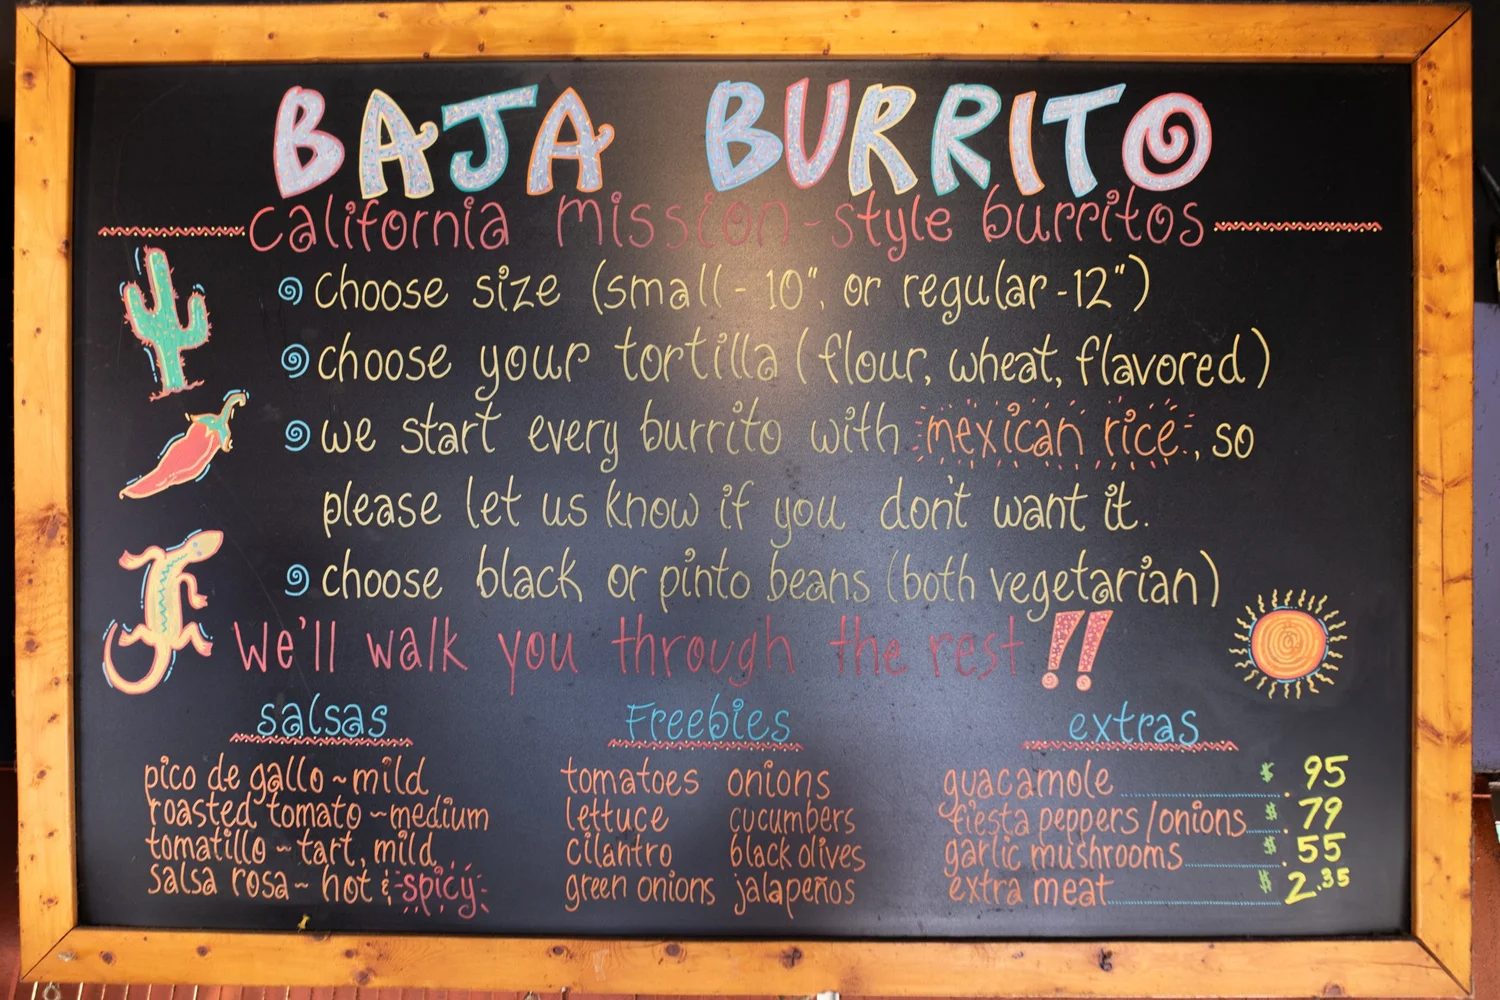 BAJA BURRITO
California Mission-style burritos
choose size (small - 10", or regular - 12")
choose your tortilla (flour, wheat, flavored)
we start every burrito with mexican rice, so
please let us know if you don't want it.
choose black or pinto beans (both vegetarian)
We'll walk you through the rest!!
salsas
pico de gallo ~ mild
roasted tomato ~ medium
tomatillo ~ tart, mild
salsa rosa ~ hot & spicy
Freebies
tomatoes onions
lettuce cucumbers
cilantro black olives
green onions jalapeños
extras
guacamole $.95
fiesta peppers/onions $.79
garlic mushrooms $.55
extra meat $2.35